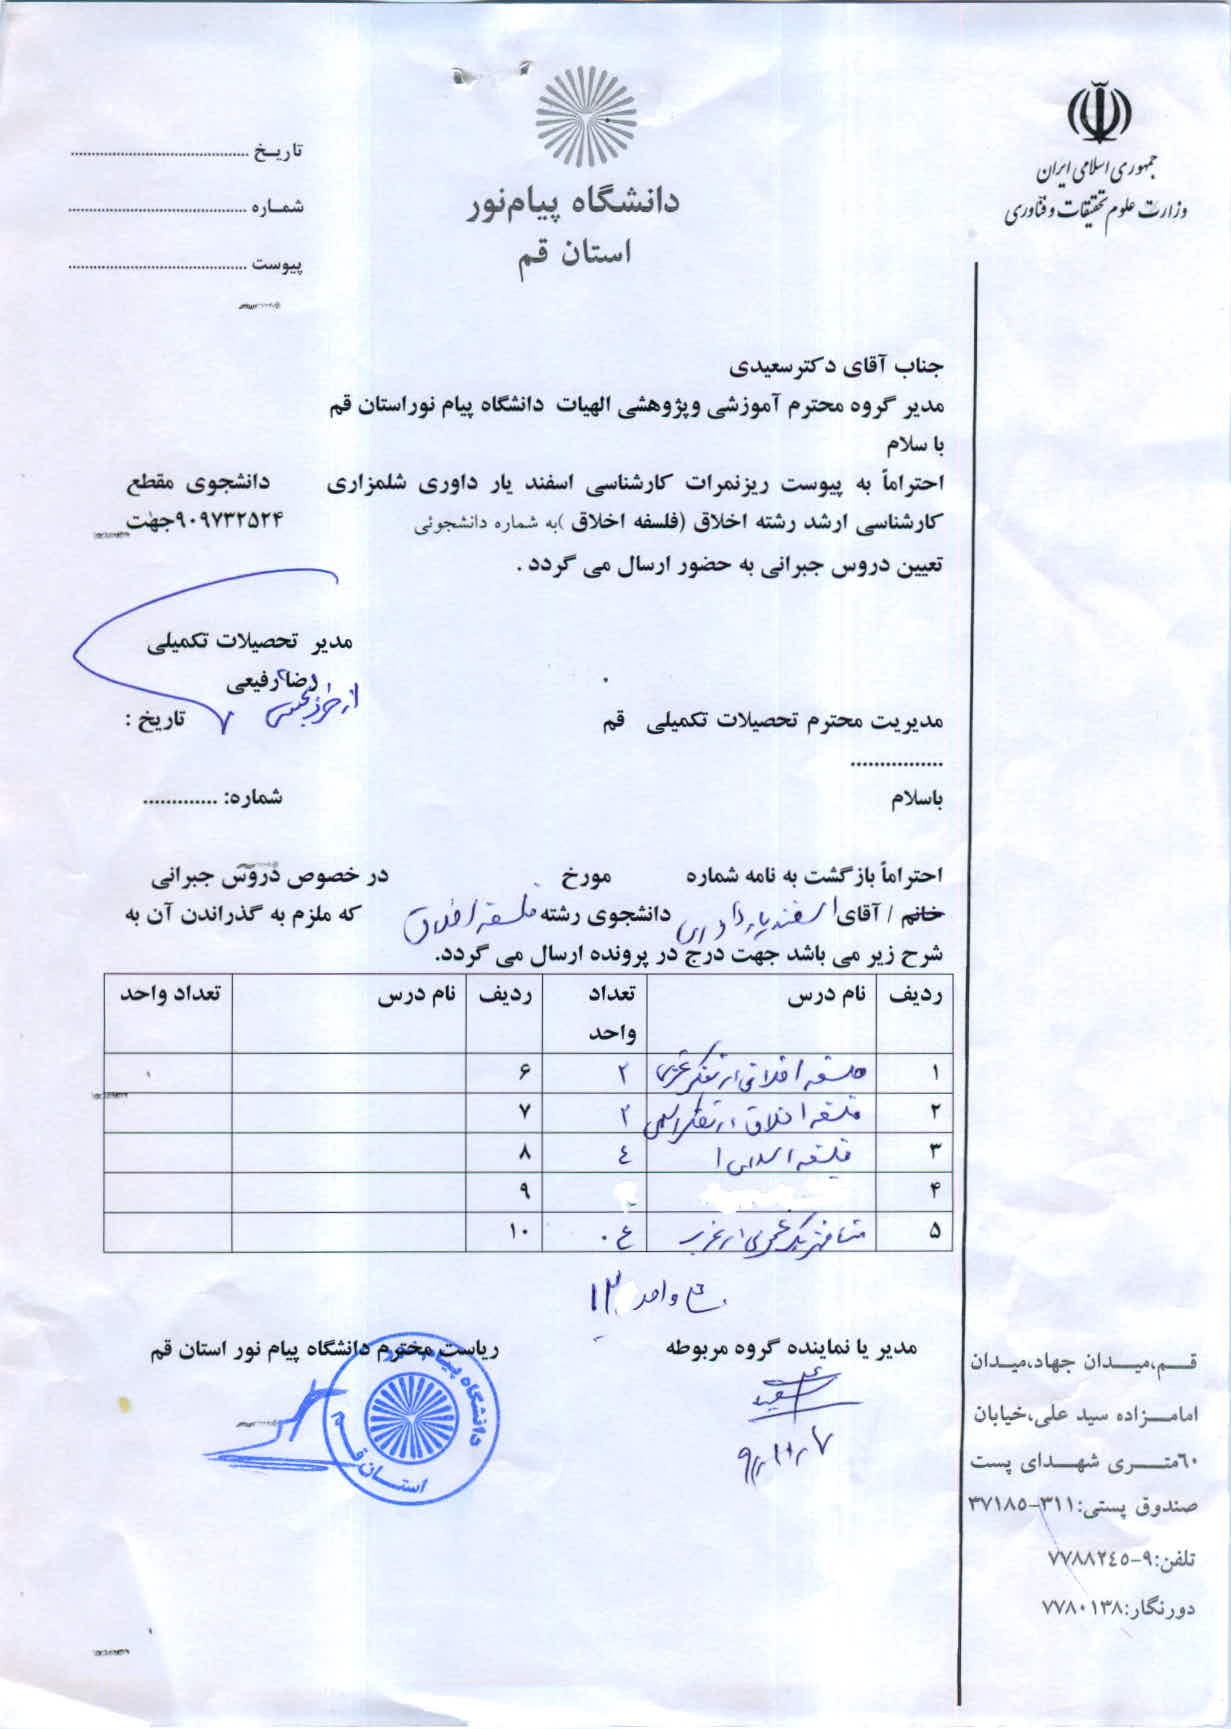 جمهوری اسلامی ایران
وزارت علوم تحقیقات و فناوری
دانشگاه پیام‌نور
استان قم
تاریـخ ........................................
شمـاره ........................................
پیوست ........................................
جناب آقای دکترسعیدی
مدیر گروه محترم آموزشی وپژوهشی الهیات دانشگاه پیام نوراستان قم
با سلام
احتراماً به پیوست ریزنمرات کارشناسی اسفند یار داوری شلمزاری دانشجوی مقطع
کارشناسی ارشد رشته اخلاق (فلسفه اخلاق )به شماره دانشجوئی ۹۰۹۷۳۲۵۲۴جهت
تعیین دروس جبرانی به حضور ارسال می گردد .
مدیر تحصیلات تکمیلی
رضا رفیعی
مدیریت محترم تحصیلات تکمیلی قم
تاریخ :
................
باسلام
شماره: .............
احتراماً بازگشت به نامه شماره مورخ در خصوص دروس جبرانی
خانم / آقای اسفندیار داوری دانشجوی رشته فلسفه اخلاق که ملزم به گذراندن آن به
شرح زیر می باشد جهت درج در پرونده ارسال می گردد.
ردیف نام درس تعداد واحد ردیف نام درس تعداد واحد
۱ فلسفه اخلاق در تفکر غرب ۲ ۶
۲ فلسفه اخلاق در تفکر اسلامی ۲ ۷
۳ فلسفه اسلامی ۱ ٤ ۸
۴ ۹
۵ متافیزیک عمومی در غرب ٤ ۱۰
واحد ۱۲
مدیر یا نماینده گروه مربوطه
ریاست محترم دانشگاه پیام نور استان قم
دانشگاه پیام نور
استان قم
قـم،میـدان جهاد،میـدان
امامـزاده سید علی،خیابان
٦٠متـری شهـدای پست
صندوق پستی:۳۱۱-۳۷۱۸۵
تلفن:۹-۷۷۸۸۲٤٥
دورنگار:۷۷۸۰۱۳۸